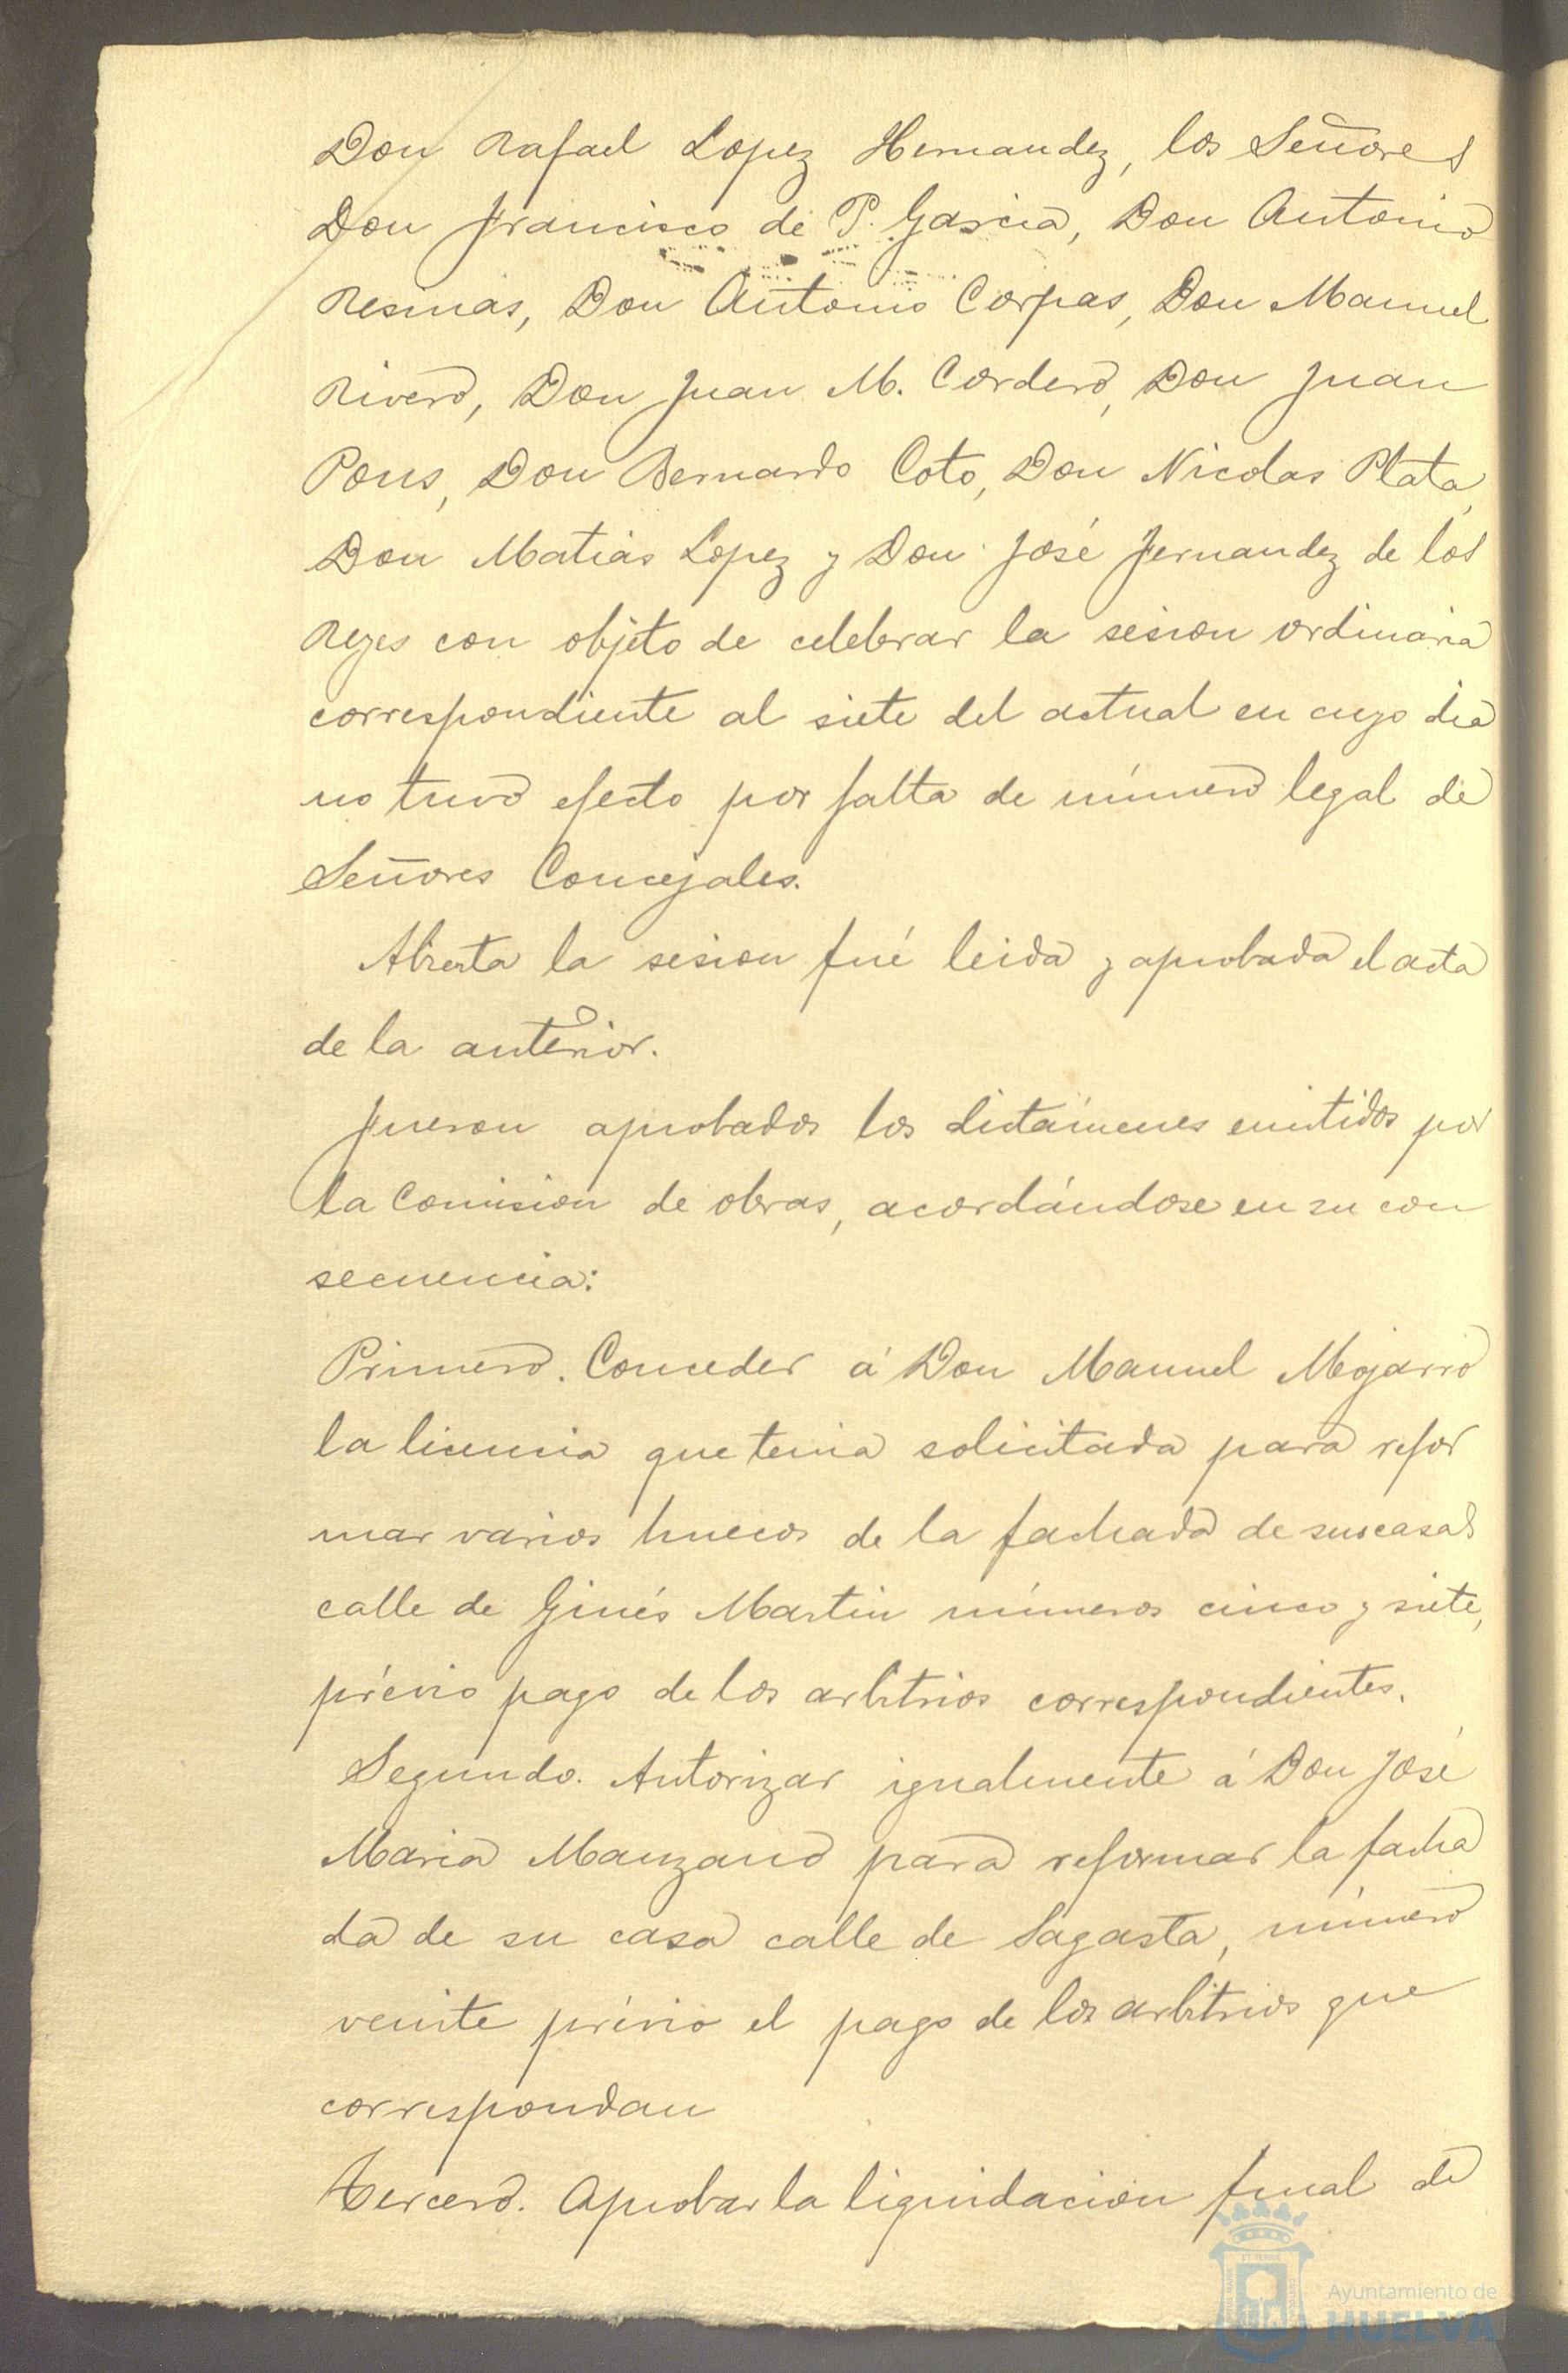 Don Rafael Lopez Hernandez, los Señores
Don Francisco de P. Garcia, Don Antonio
Resinas, Don Antonio Corpas, Don Manuel
Rivero, Don Juan M. Cordero, Don Juan
Pons, Don Bernardo Coto, Don Nicolas Plata,
Don Matias Lopez y Don José Fernandez de los
Reyes con objeto de celebrar la sesion ordinaria
correspondiente al siete del actual en cuyo dia
no tuvo efecto por falta de número legal de
Señores Concejales.
Abierta la sesion fué leida y aprobada el acta
de la anterior.
Fueron aprobados los dictámenes emitidos por
la Comision de obras, acordándose en su con
secuencia:
Primero. Conceder á Don Manuel Mojarro
la licencia que tenia solicitada para refor
mar varios huecos de la fachada de sus casas
calle de Ginés Martin números cinco y siete,
prévio pago de los arbitrios correspondientes.
Segundo. Autorizar igualmente á Don José
Maria Manzano para reformar la facha
da de su casa calle de Sagasta, número
veinte prévio el pago de los arbitrios que
correspondan
Tercero. Aprobar la liquidacion final de
Ayuntamiento de
HUELVA